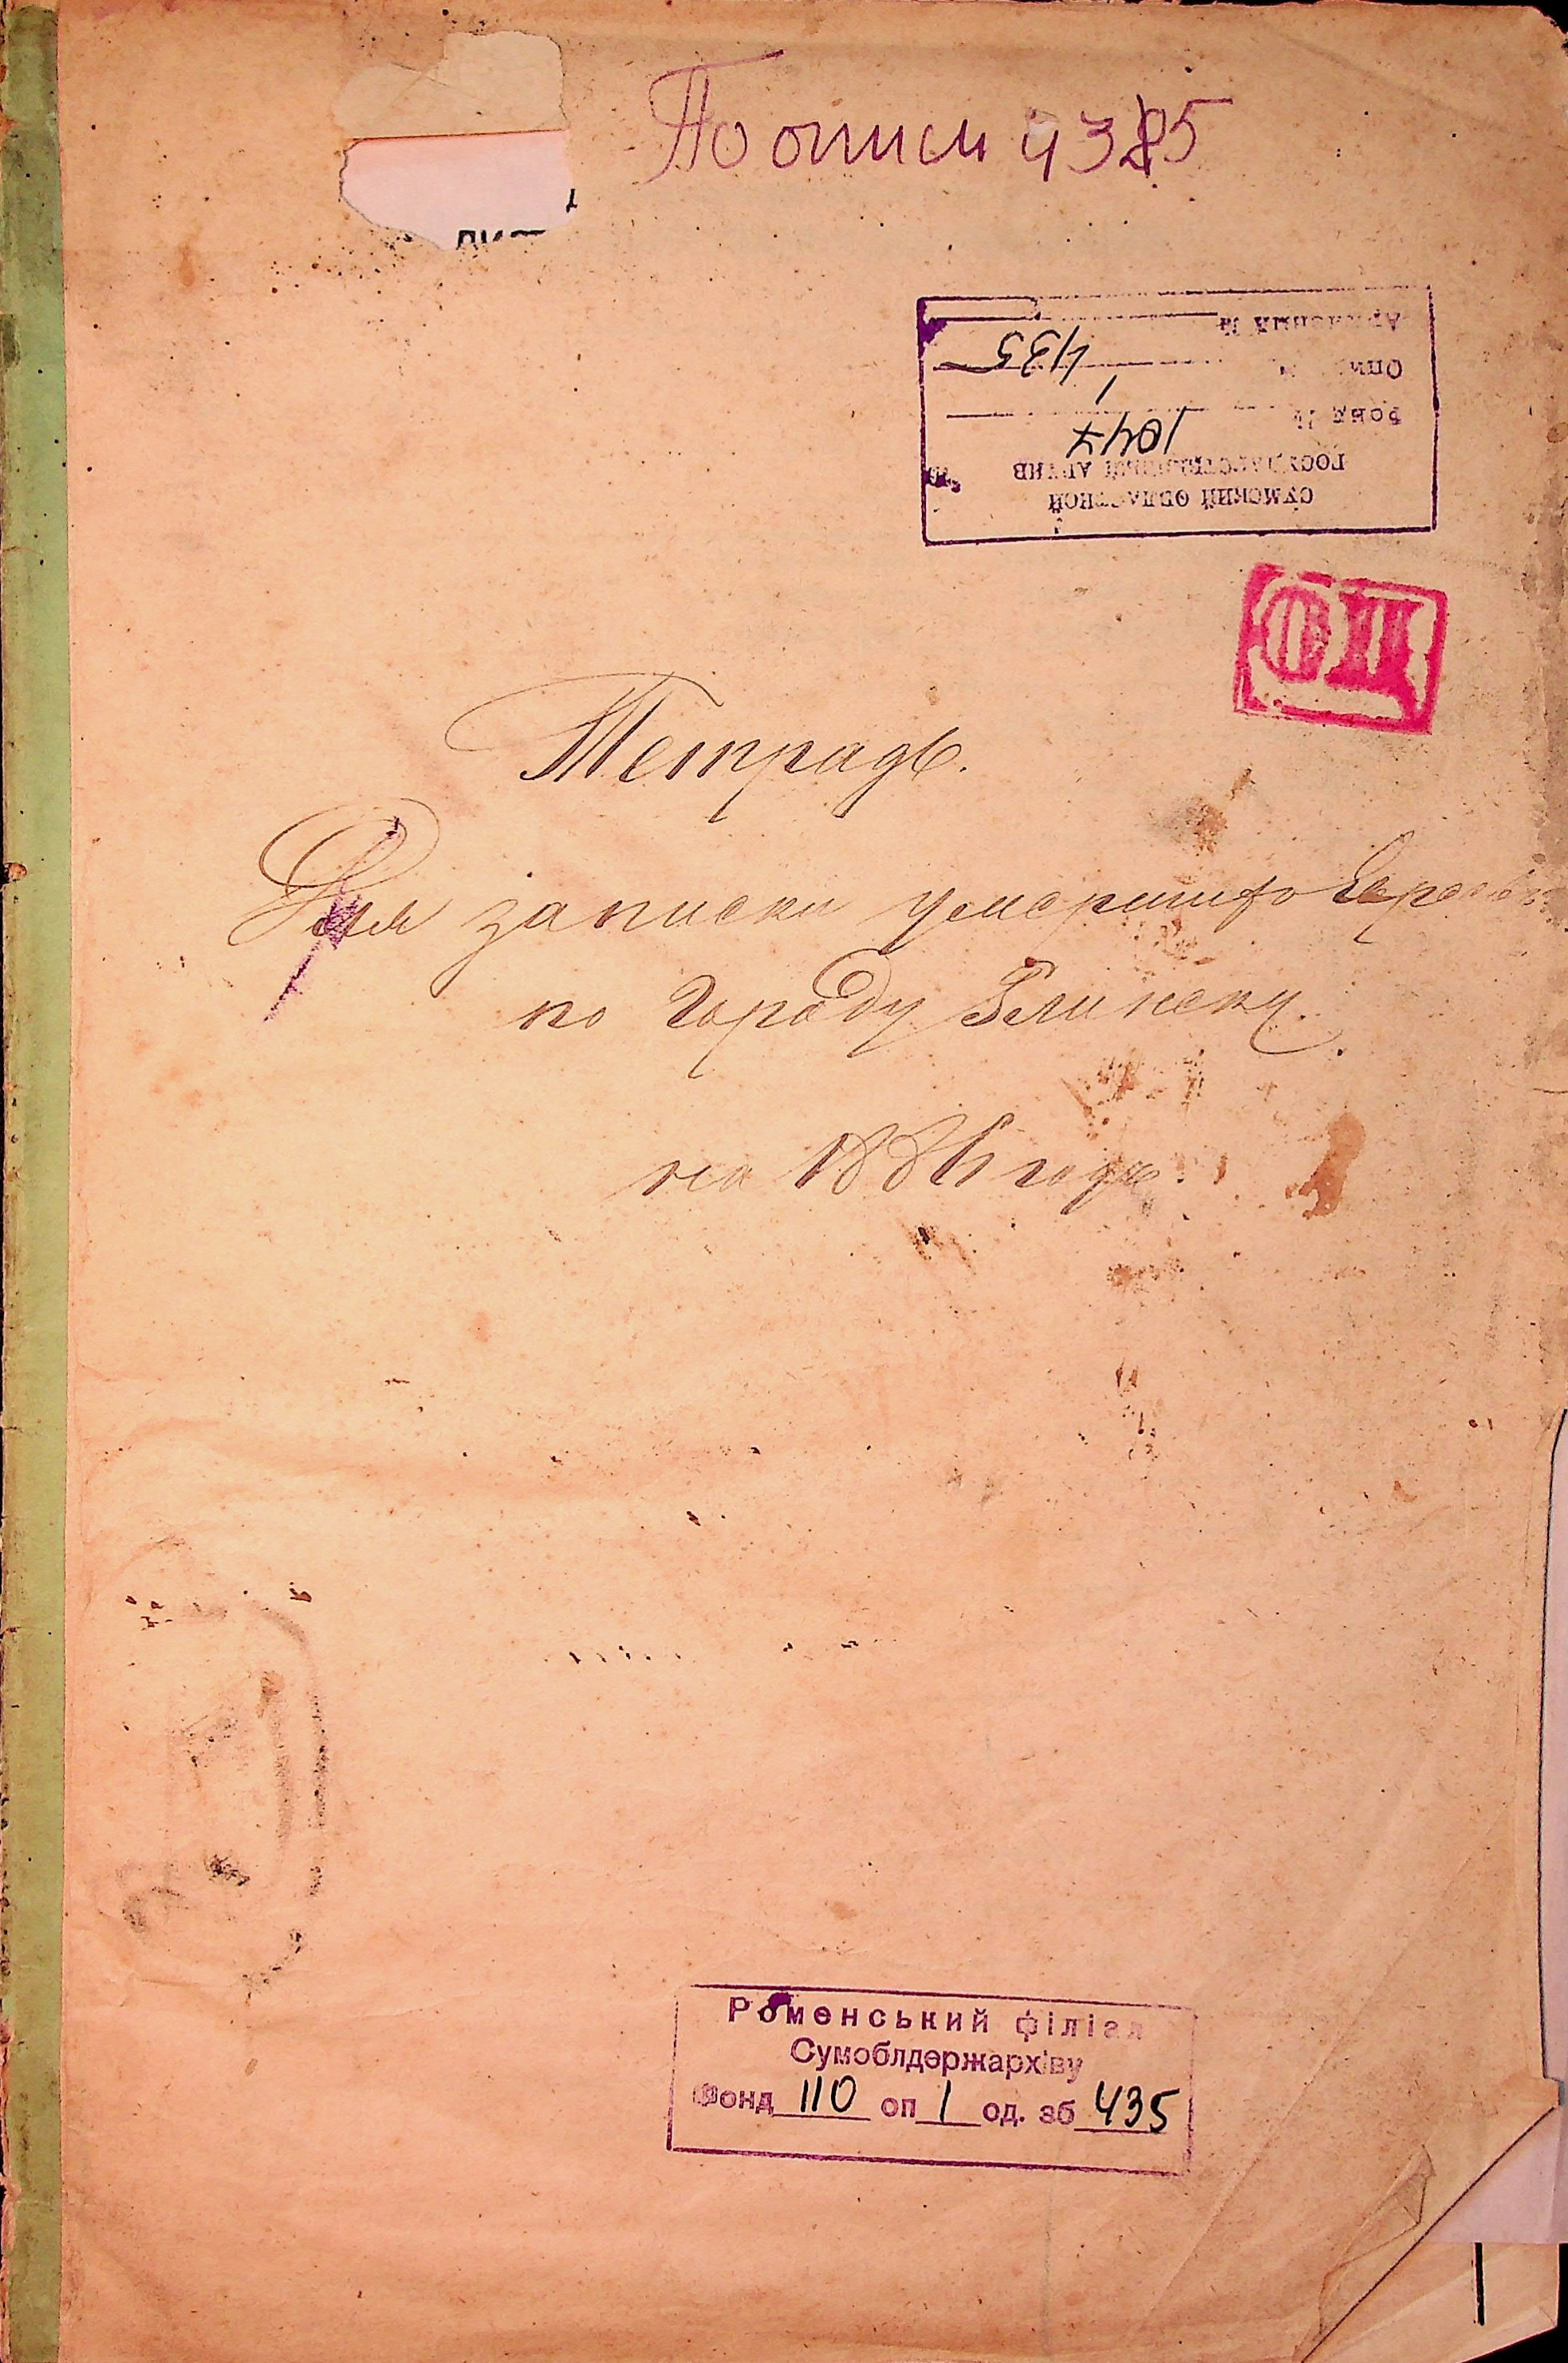 По описи 4385
СУМСКИЙ ОБЛАСТНОЙ
ГОСУДАРСТВЕННЫЙ АРХИВ
Фонд № 1047
Опись № 1
435
Архивный №
ОЦ
Тетрадь.
Для записки умершихъ Евреевъ
по Городу Глинску.
на 1886 годъ.
Роменський філіал
Сумоблдержархіву
Фонд 110 оп 1 од. зб 435